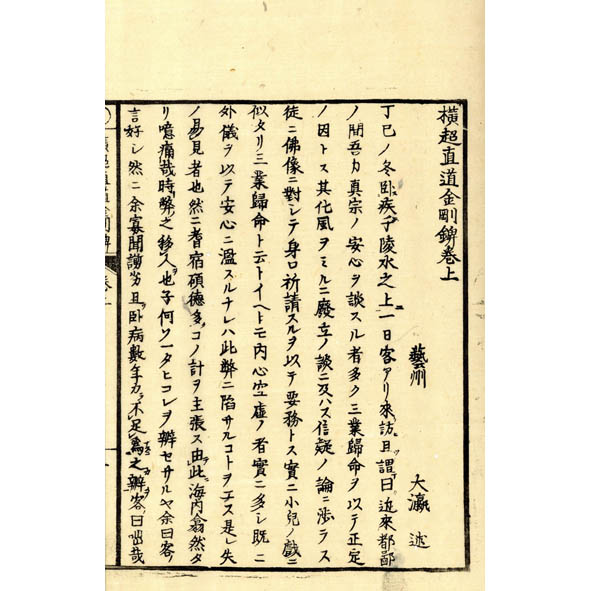 橫超直道金剛錍卷上
藝州　大瀛　述
丁巳ノ冬臥疾于陵水之上一日客アリ來訪且謂曰近來都鄙
ノ間吾カ真宗ノ安心ヲ談スル者多ク三業歸命ヲ以テ正定
ノ因トス其化風ヲミルニ廢立ノ談ニ及ハス信疑ノ論ニ渉ラス
徒ニ佛像ニ對シテ身口祈請スルヲ以テ要務トス實ニ小兒ノ戲ニ
似タリ三業歸命ト云トイヘトモ内心空虛ノ者實ニ多シ既ニ
外儀ヲ以テ安心ニ濫スルナレハ此弊ニ陷サルコトヲエス是レ失
ノ易見者也然ニ耆宿碩德多コノ計ヲ主張ス由此海内翕然タ
リ噫痛哉時弊之移人也子何ソータヒコレヲ辨セサルヤ余曰客ノ
言好シ然ニ余寡聞謭劣且臥病數年力不足爲之辨客曰咄哉